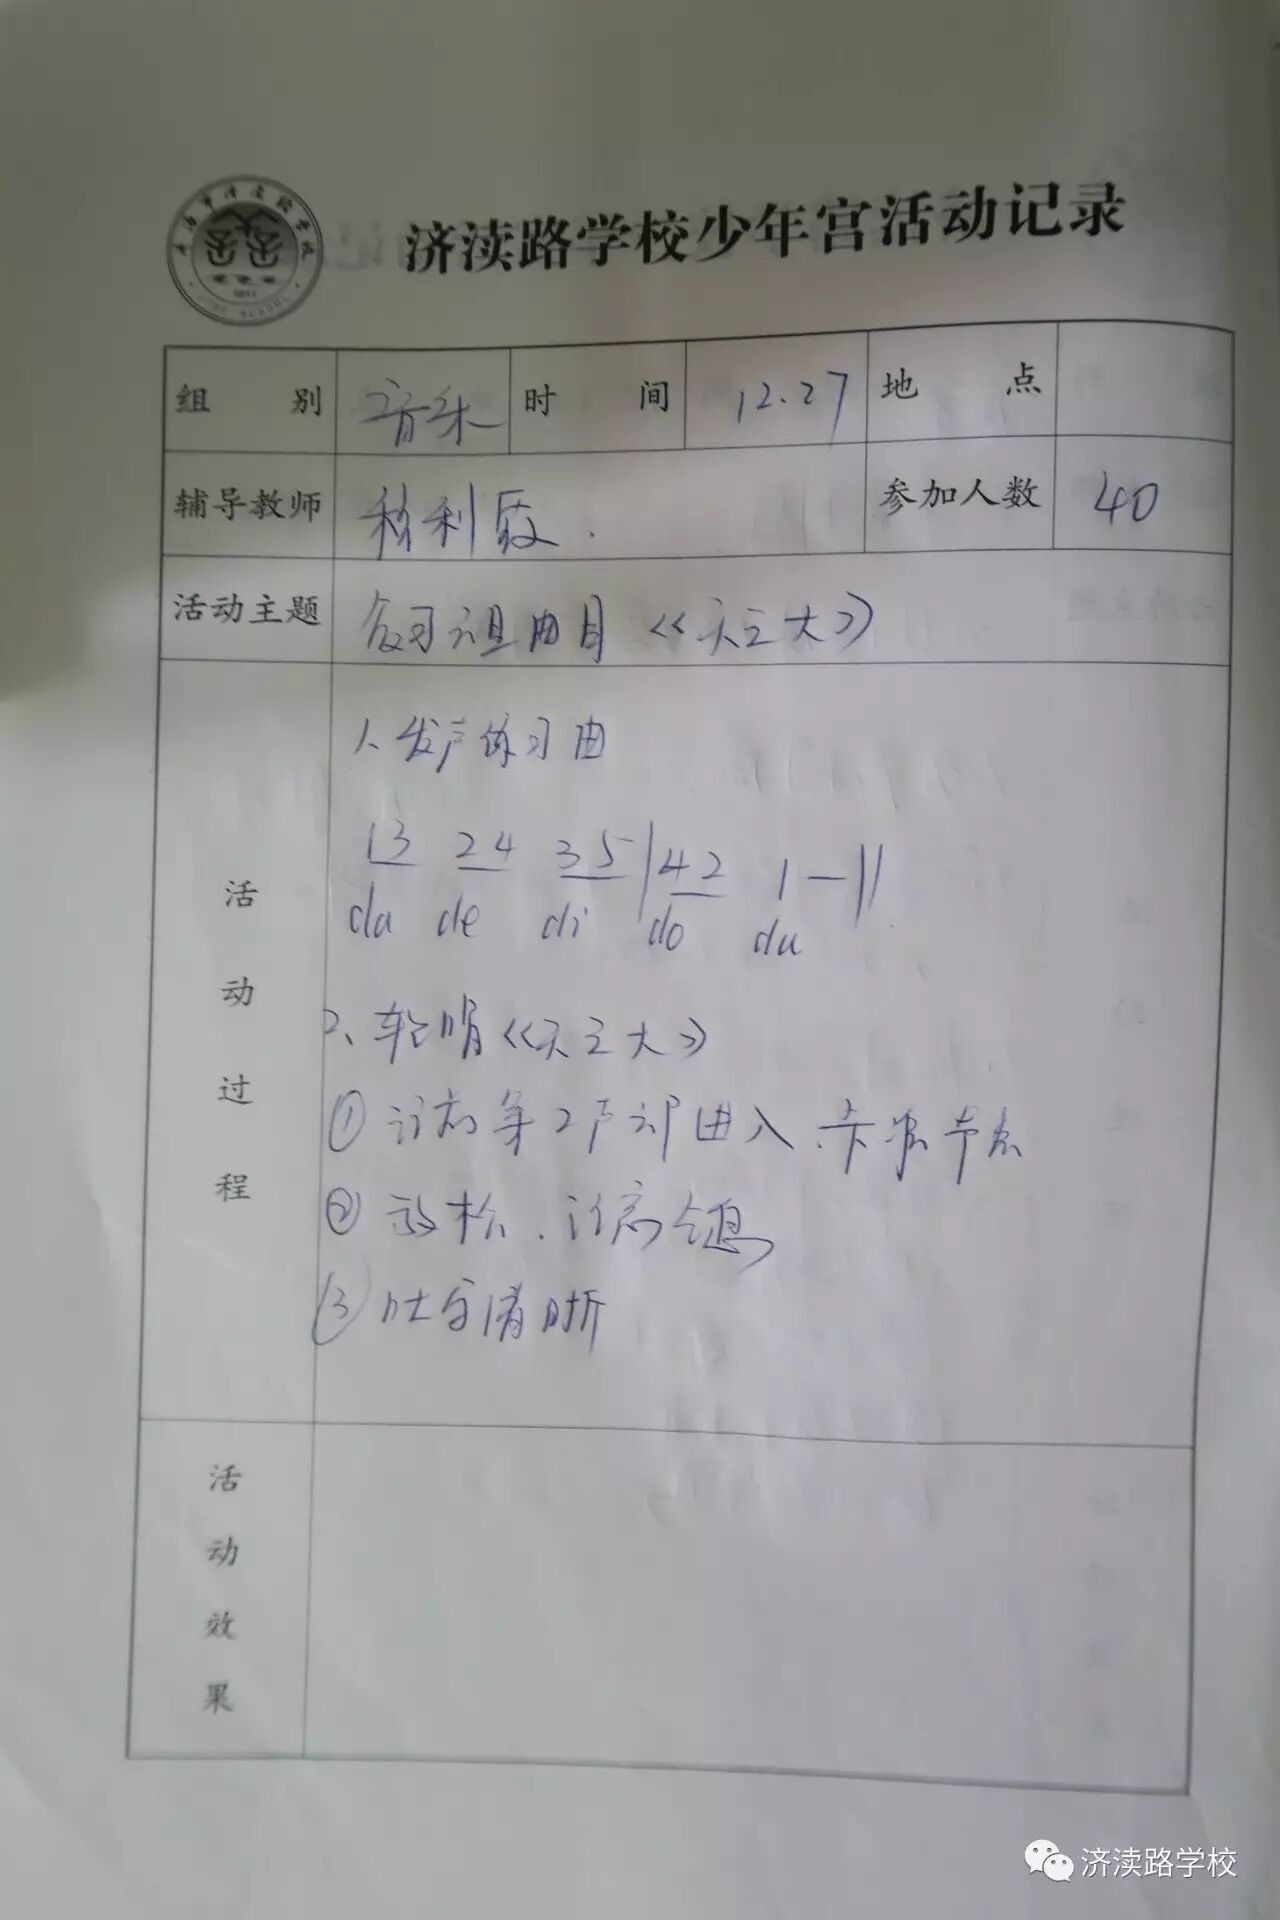 济渎路学校少年宫活动记录
组别 音乐 时间 12.27 地点
辅导教师 利 参加人数 40
活动主题 复习曲目《天之大》
活动过程
1、发声练习曲
13 24 35 | 42 1 - ||
da de di do du
2、轮唱《天之大》
① 注意第2声部进入、卡准节奏
② 放松、注意气息
③ 吐字清晰
活动效果
济渎路学校